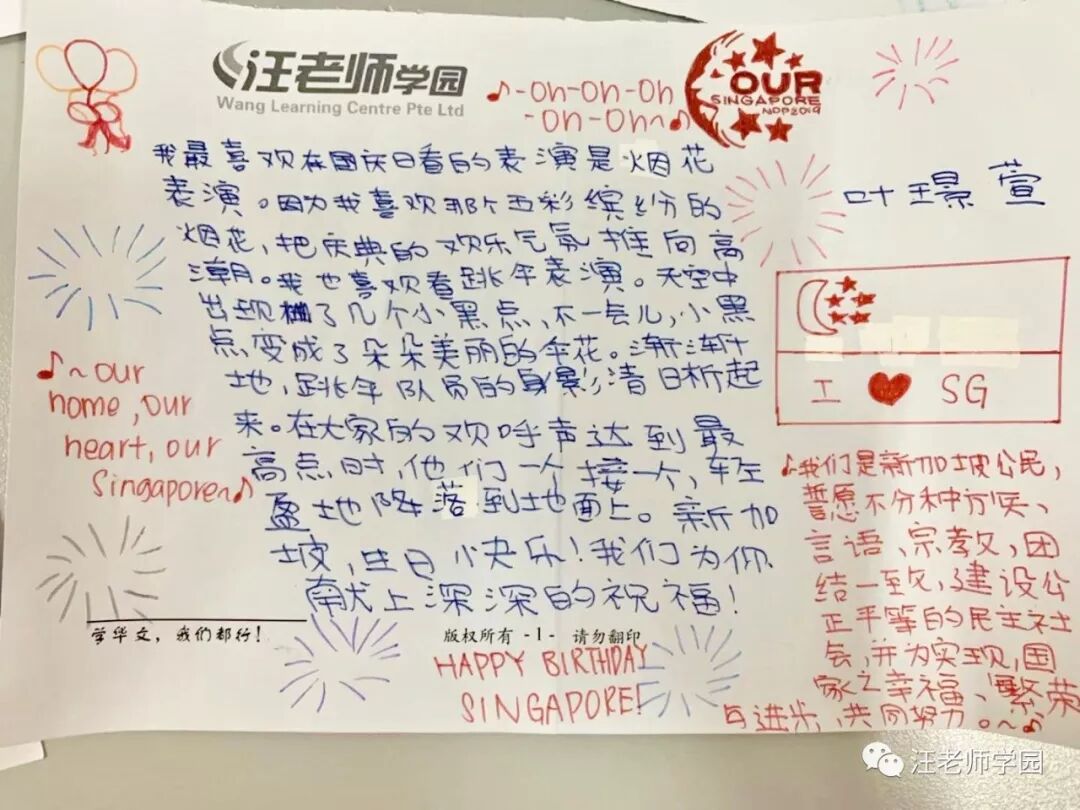 汪老师学园
Wang Learning Centre Pte Ltd
♪-Oh-Oh-Oh
-Oh-Oh~♪
OUR
SINGAPORE
NDP2019
叶璟萱
我最喜欢在国庆日看的表演是烟花
表演。因为我喜欢那个五彩缤纷的
烟花，把庆典的欢乐气氛推向高
潮。我也喜欢看跳伞表演。天空中
出现了几个小黑点，不一会儿，小黑
点变成了朵朵美丽的伞花。渐渐
地，跳伞队员的身影清晰起
来。在大家的欢呼声达到最
高点时，他们一个接一个，轻
盈地降落到地面上。新加
坡，生日快乐！我们为你
献上深深的祝福！
♪~our
home, our
heart, our
Singapore~♪
I ♥ SG
♪我们是新加坡公民，
誓愿不分种族、
言语、宗教，团
结一致，建设公
正平等的民主社
会，并为实现国
家之幸福、繁荣
与进步，共同努力。~♪
学华文，我们都行！
版权所有 -1- 请勿翻印
HAPPY BIRTHDAY
SINGAPORE!
汪老师学园